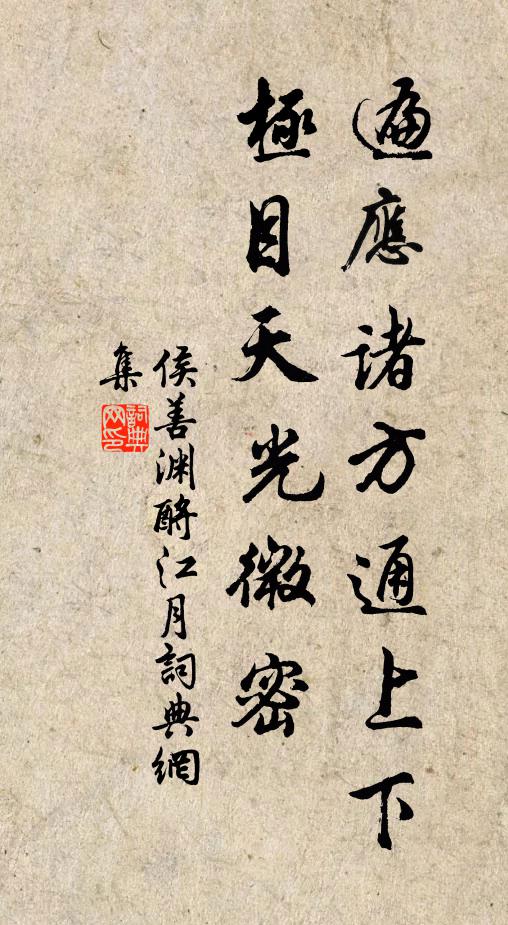 遍應諸方通上下
極目天光微密
侯善渊酹江月詞典網
集
詞典
网印